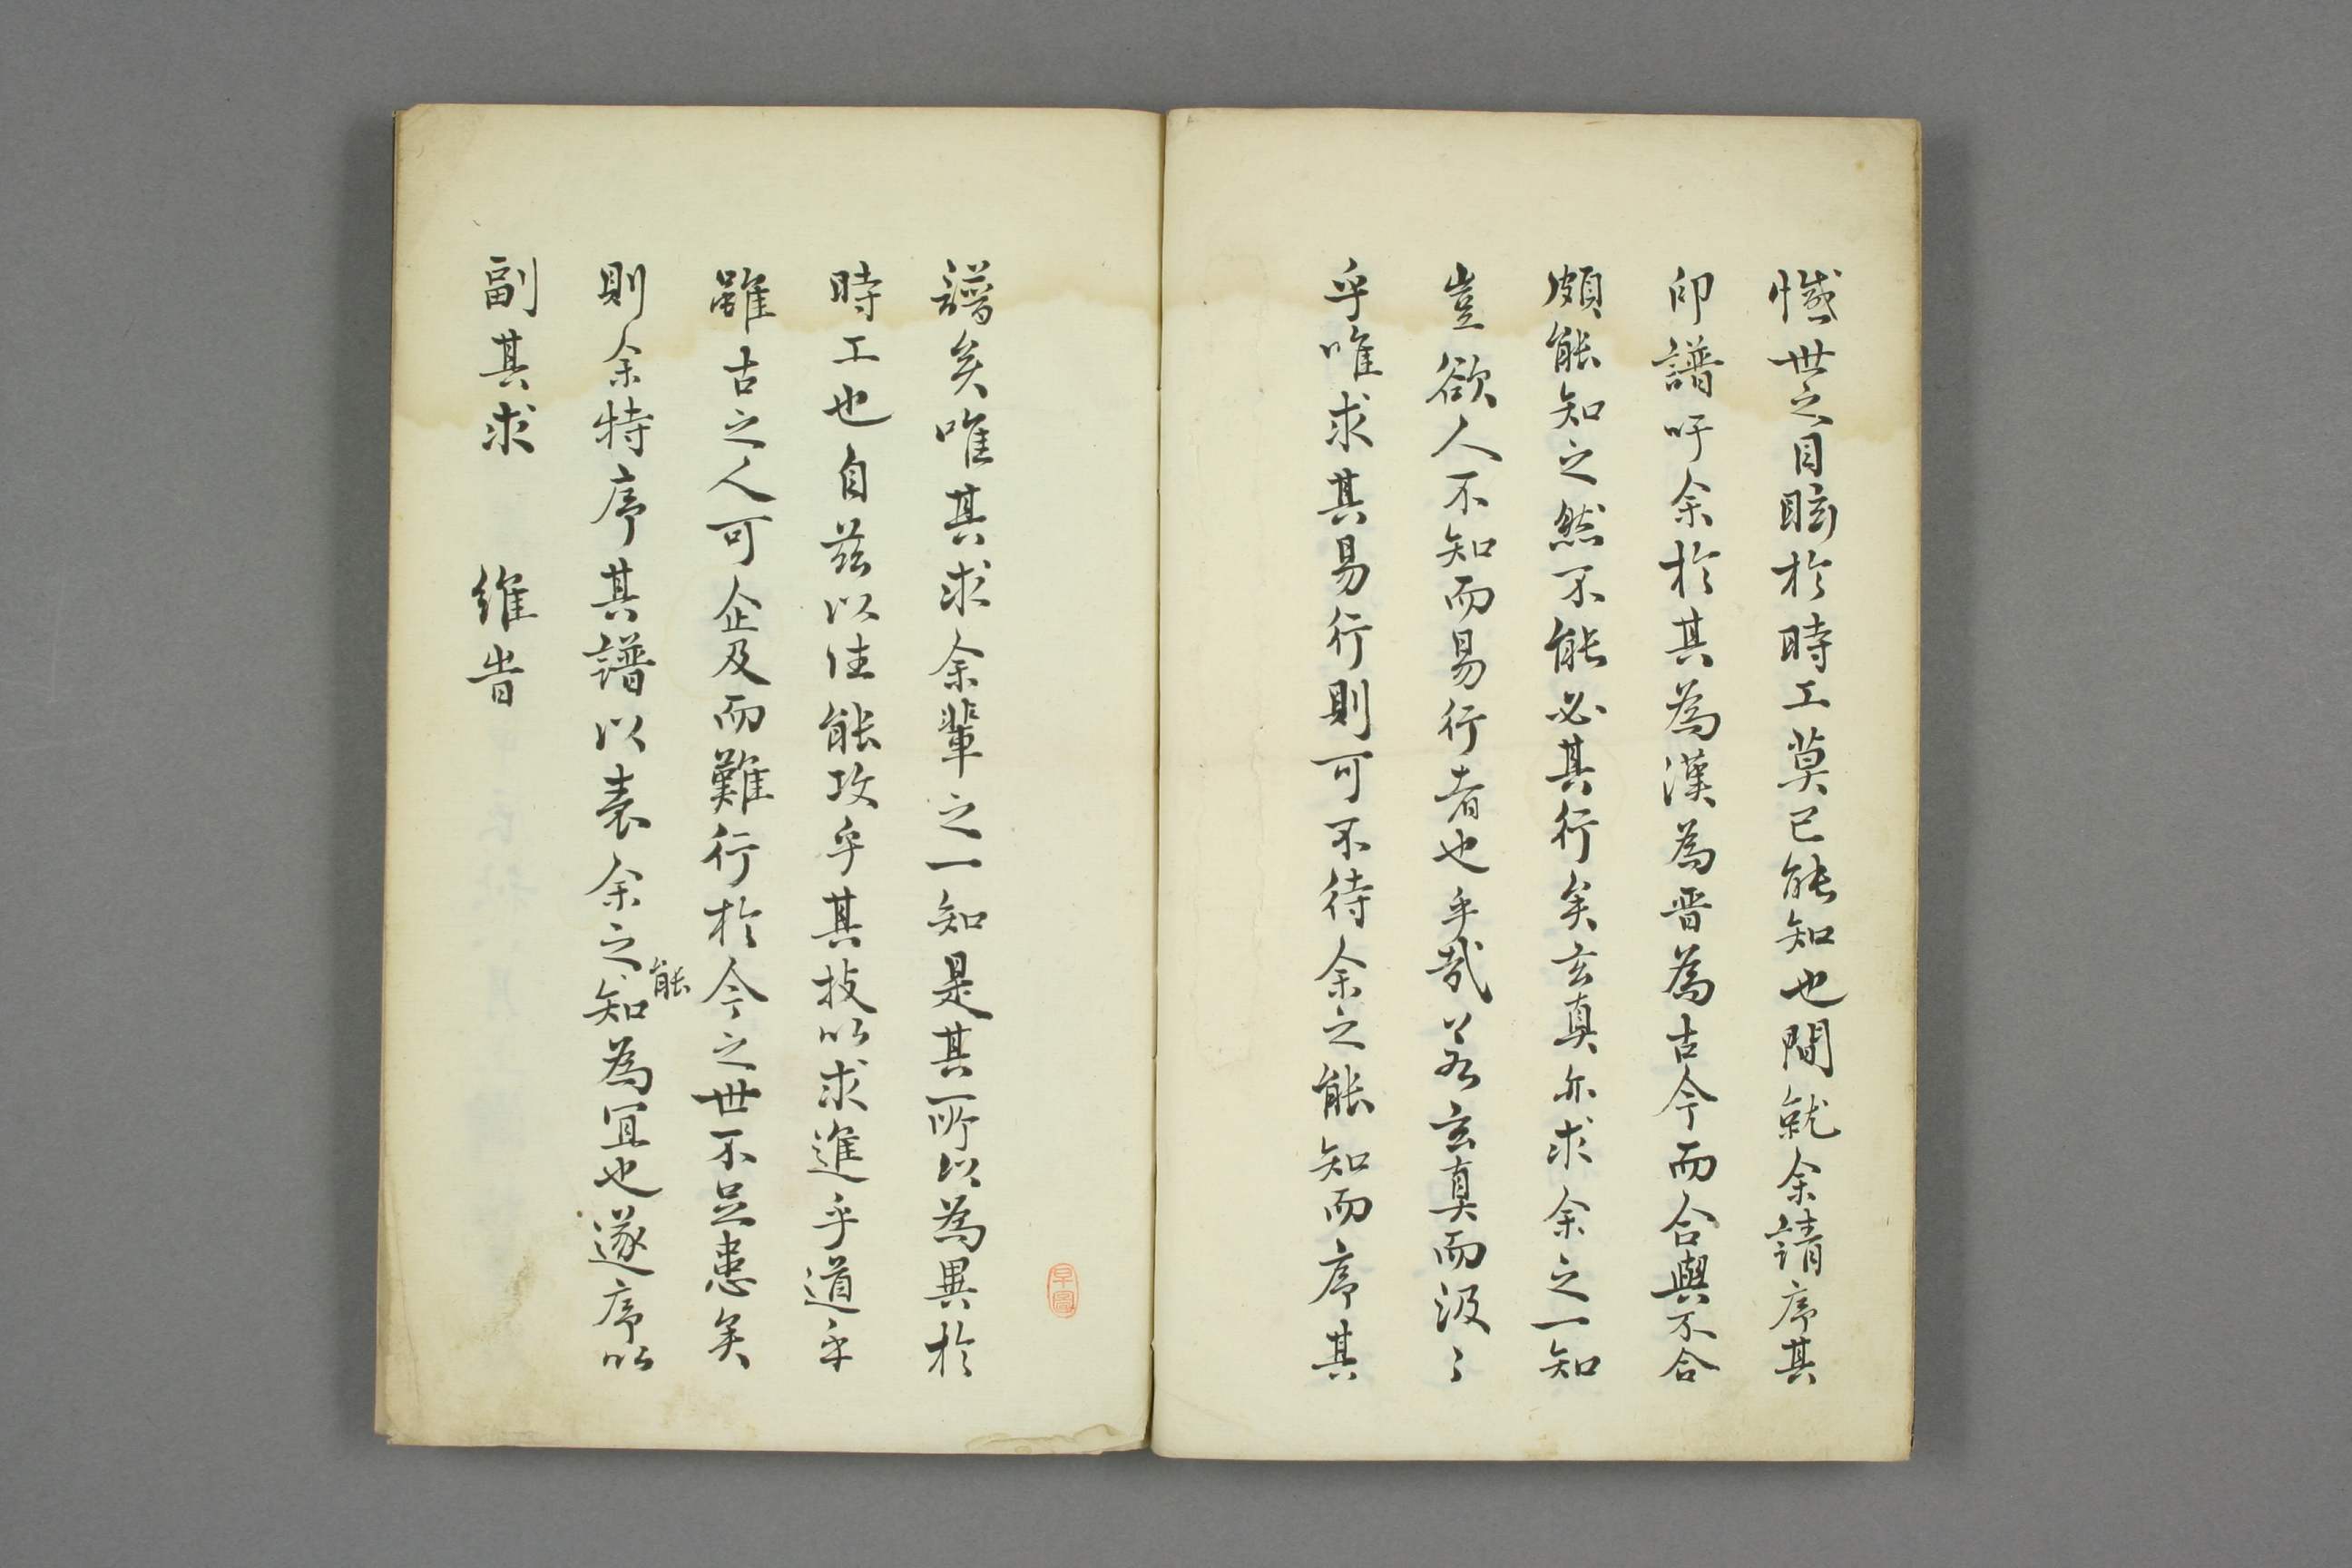 憾世之目眩於時工莫已能知也間就余請序其
印譜吁余於其為漢為晋為古今而合與不合
頗能知之然不能必其行矣玄真亦求余之一知
豈欲人不知而易行者也乎哉若玄真而汲〻
乎唯求其易行則可不待余之能知而序其
譜矣唯其求余輩之一知是其所以為異於
時工也自茲以往能攻乎其技以求進乎道乎
雖古之人可企及而難行於今之世不足患矣
則余特序其譜以表余之能知為宜也遂序以
副其求　維
早圖